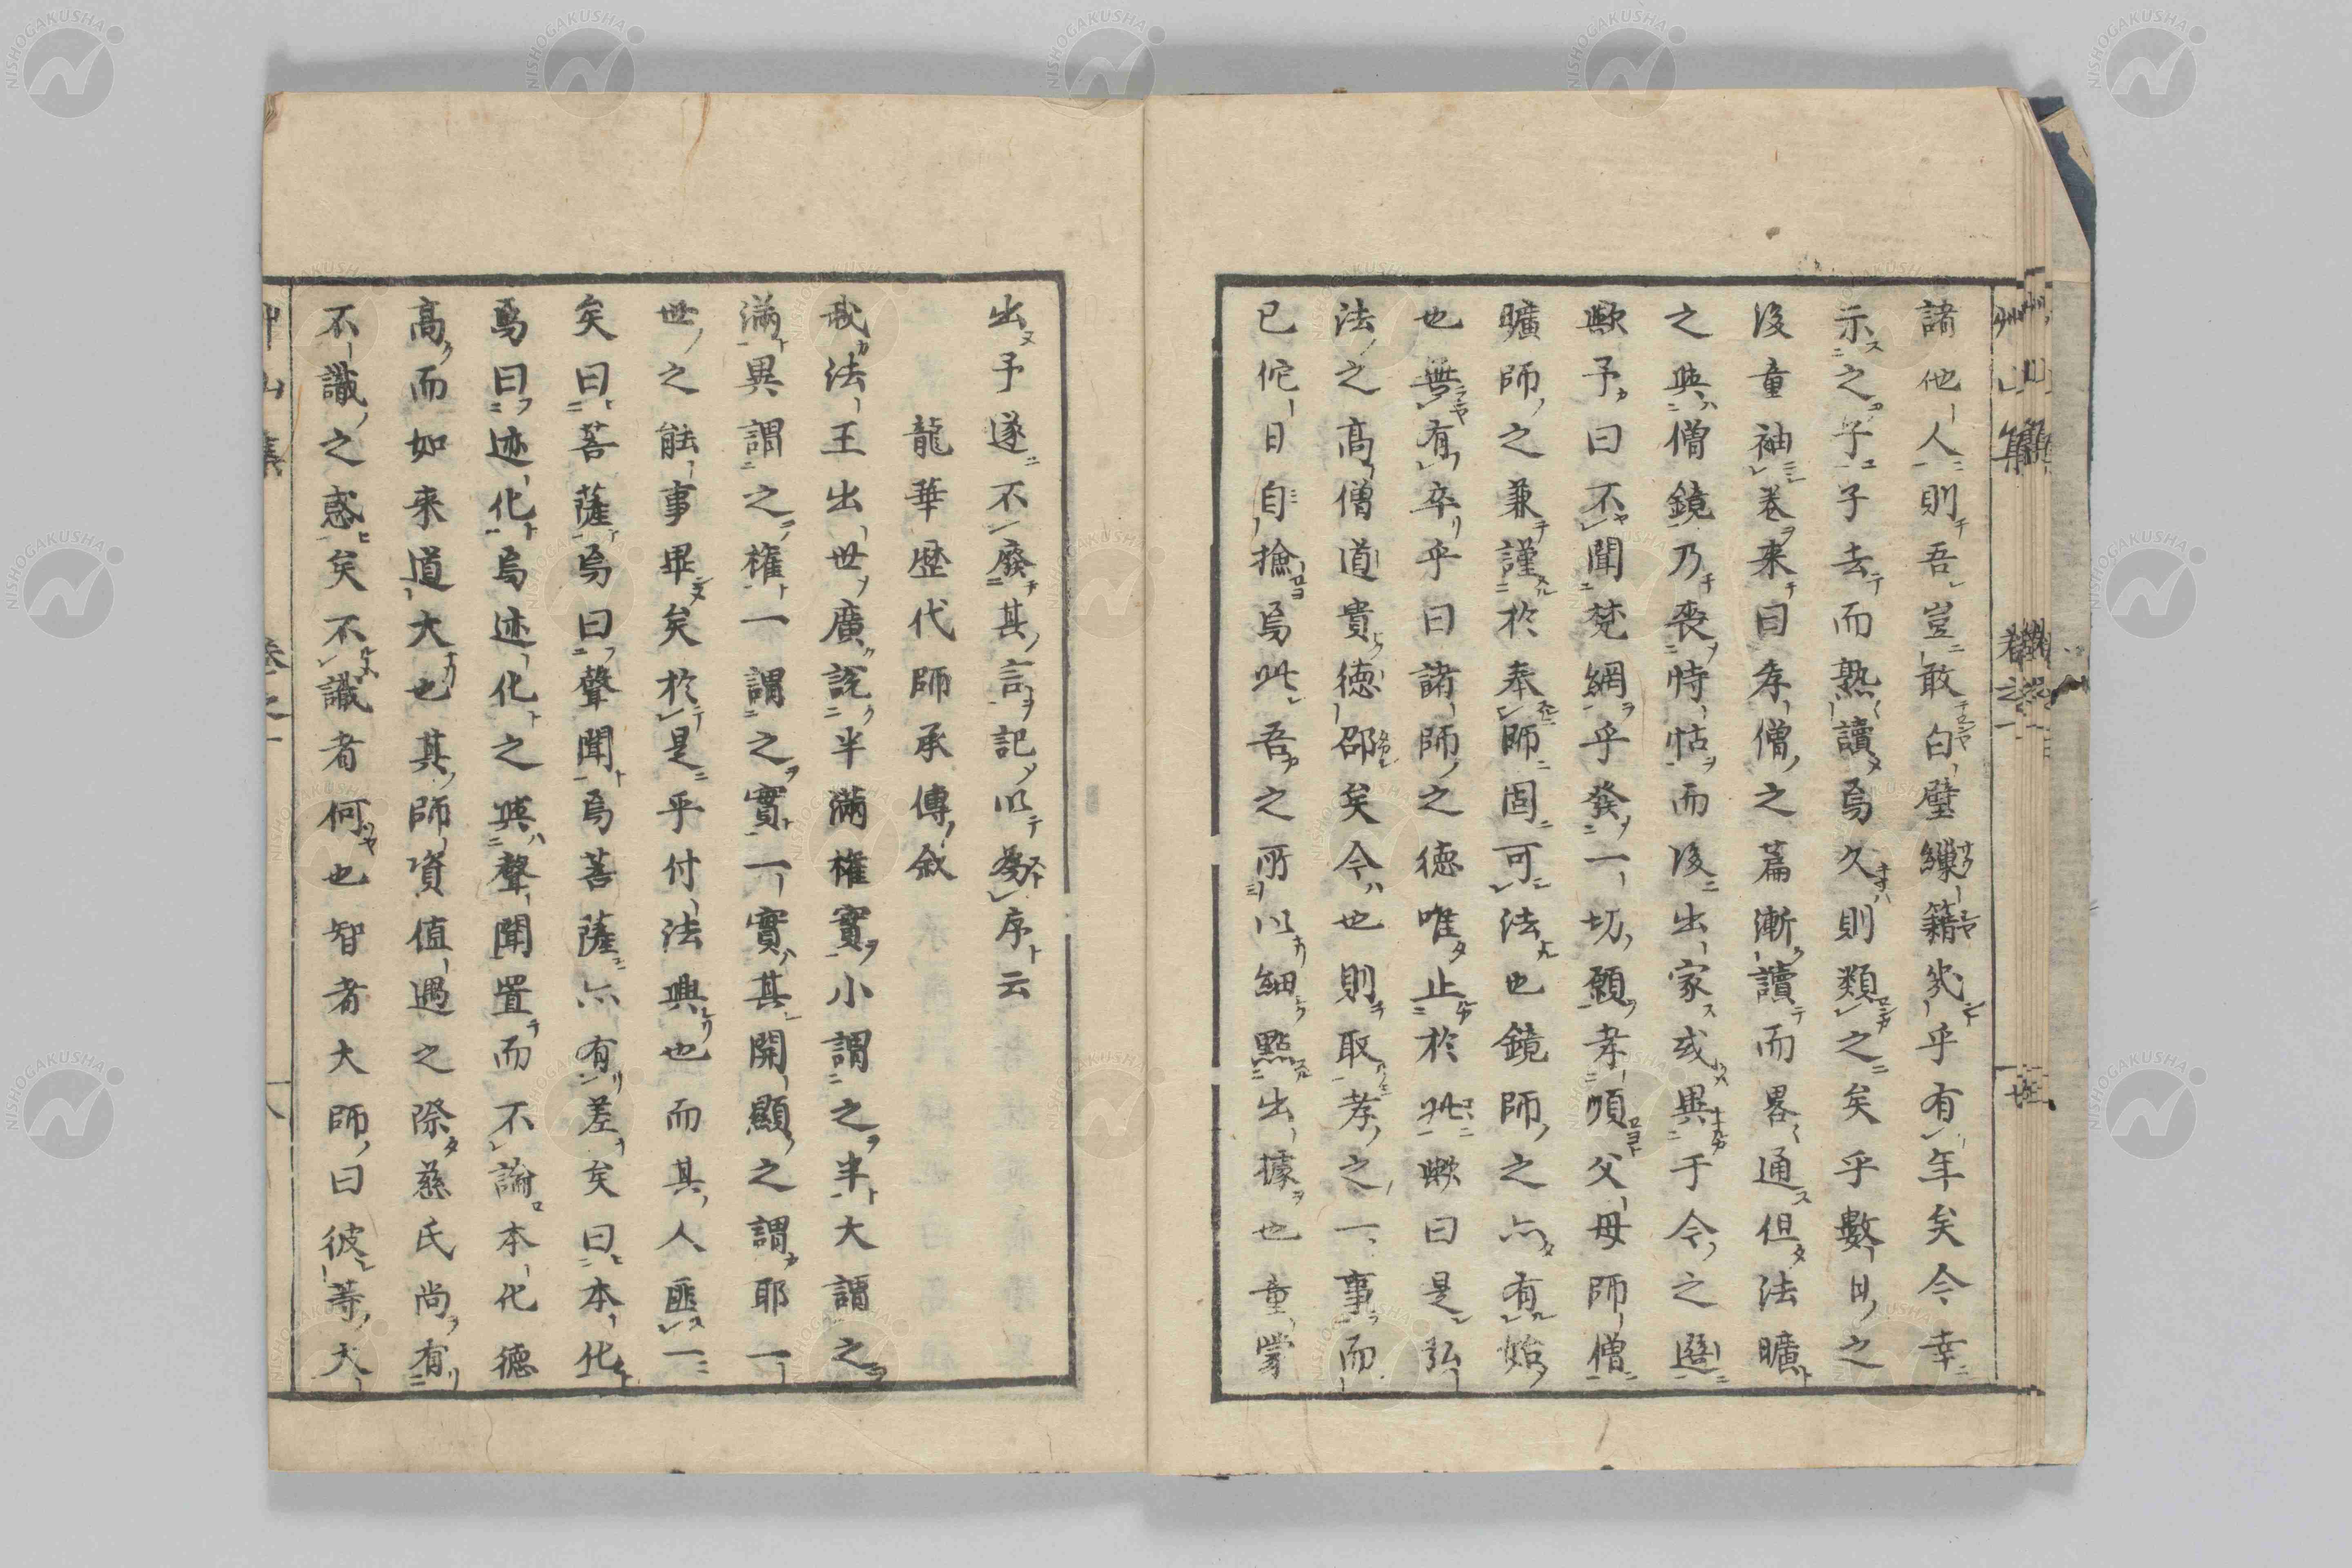 諸他人則吾豈敢白璧繅籍幾乎有年矣今幸
示之予子去而熟讀焉久則類之矣乎數日之
後童袖卷來曰孝僧之篇漸讀而畧通但法曠
之與僧鏡乃喪恃怙而後出家或異于今之選
歟予曰不聞梵網乎發一切願孝順父母師僧
曠師之兼謹於奉師固可法也鏡師之亦有始
也無有卒乎曰諸師之德唯止於此歟曰是弘
法之高僧道貴德邵矣今也則取孝之一事而
已佗日自撿焉此吾之所以細點出據也童蒙
出予遂不廢其言記以為序云
龍華歷代師承傳敘
我法王出世廣說半滿權實小謂之半大謂之
滿異謂之權一謂之實一實其開顯之謂耶一
世之能事畢矣於是乎付法興也而其人匪一
矣曰菩薩焉曰聲聞焉菩薩亦有差矣曰本化
焉曰迹化焉迹化之與聲聞置而不論本化德
高而如来道大也其師資值遇之際慈氏尚有
不識之惑矣不識者何也智者大師曰彼等大